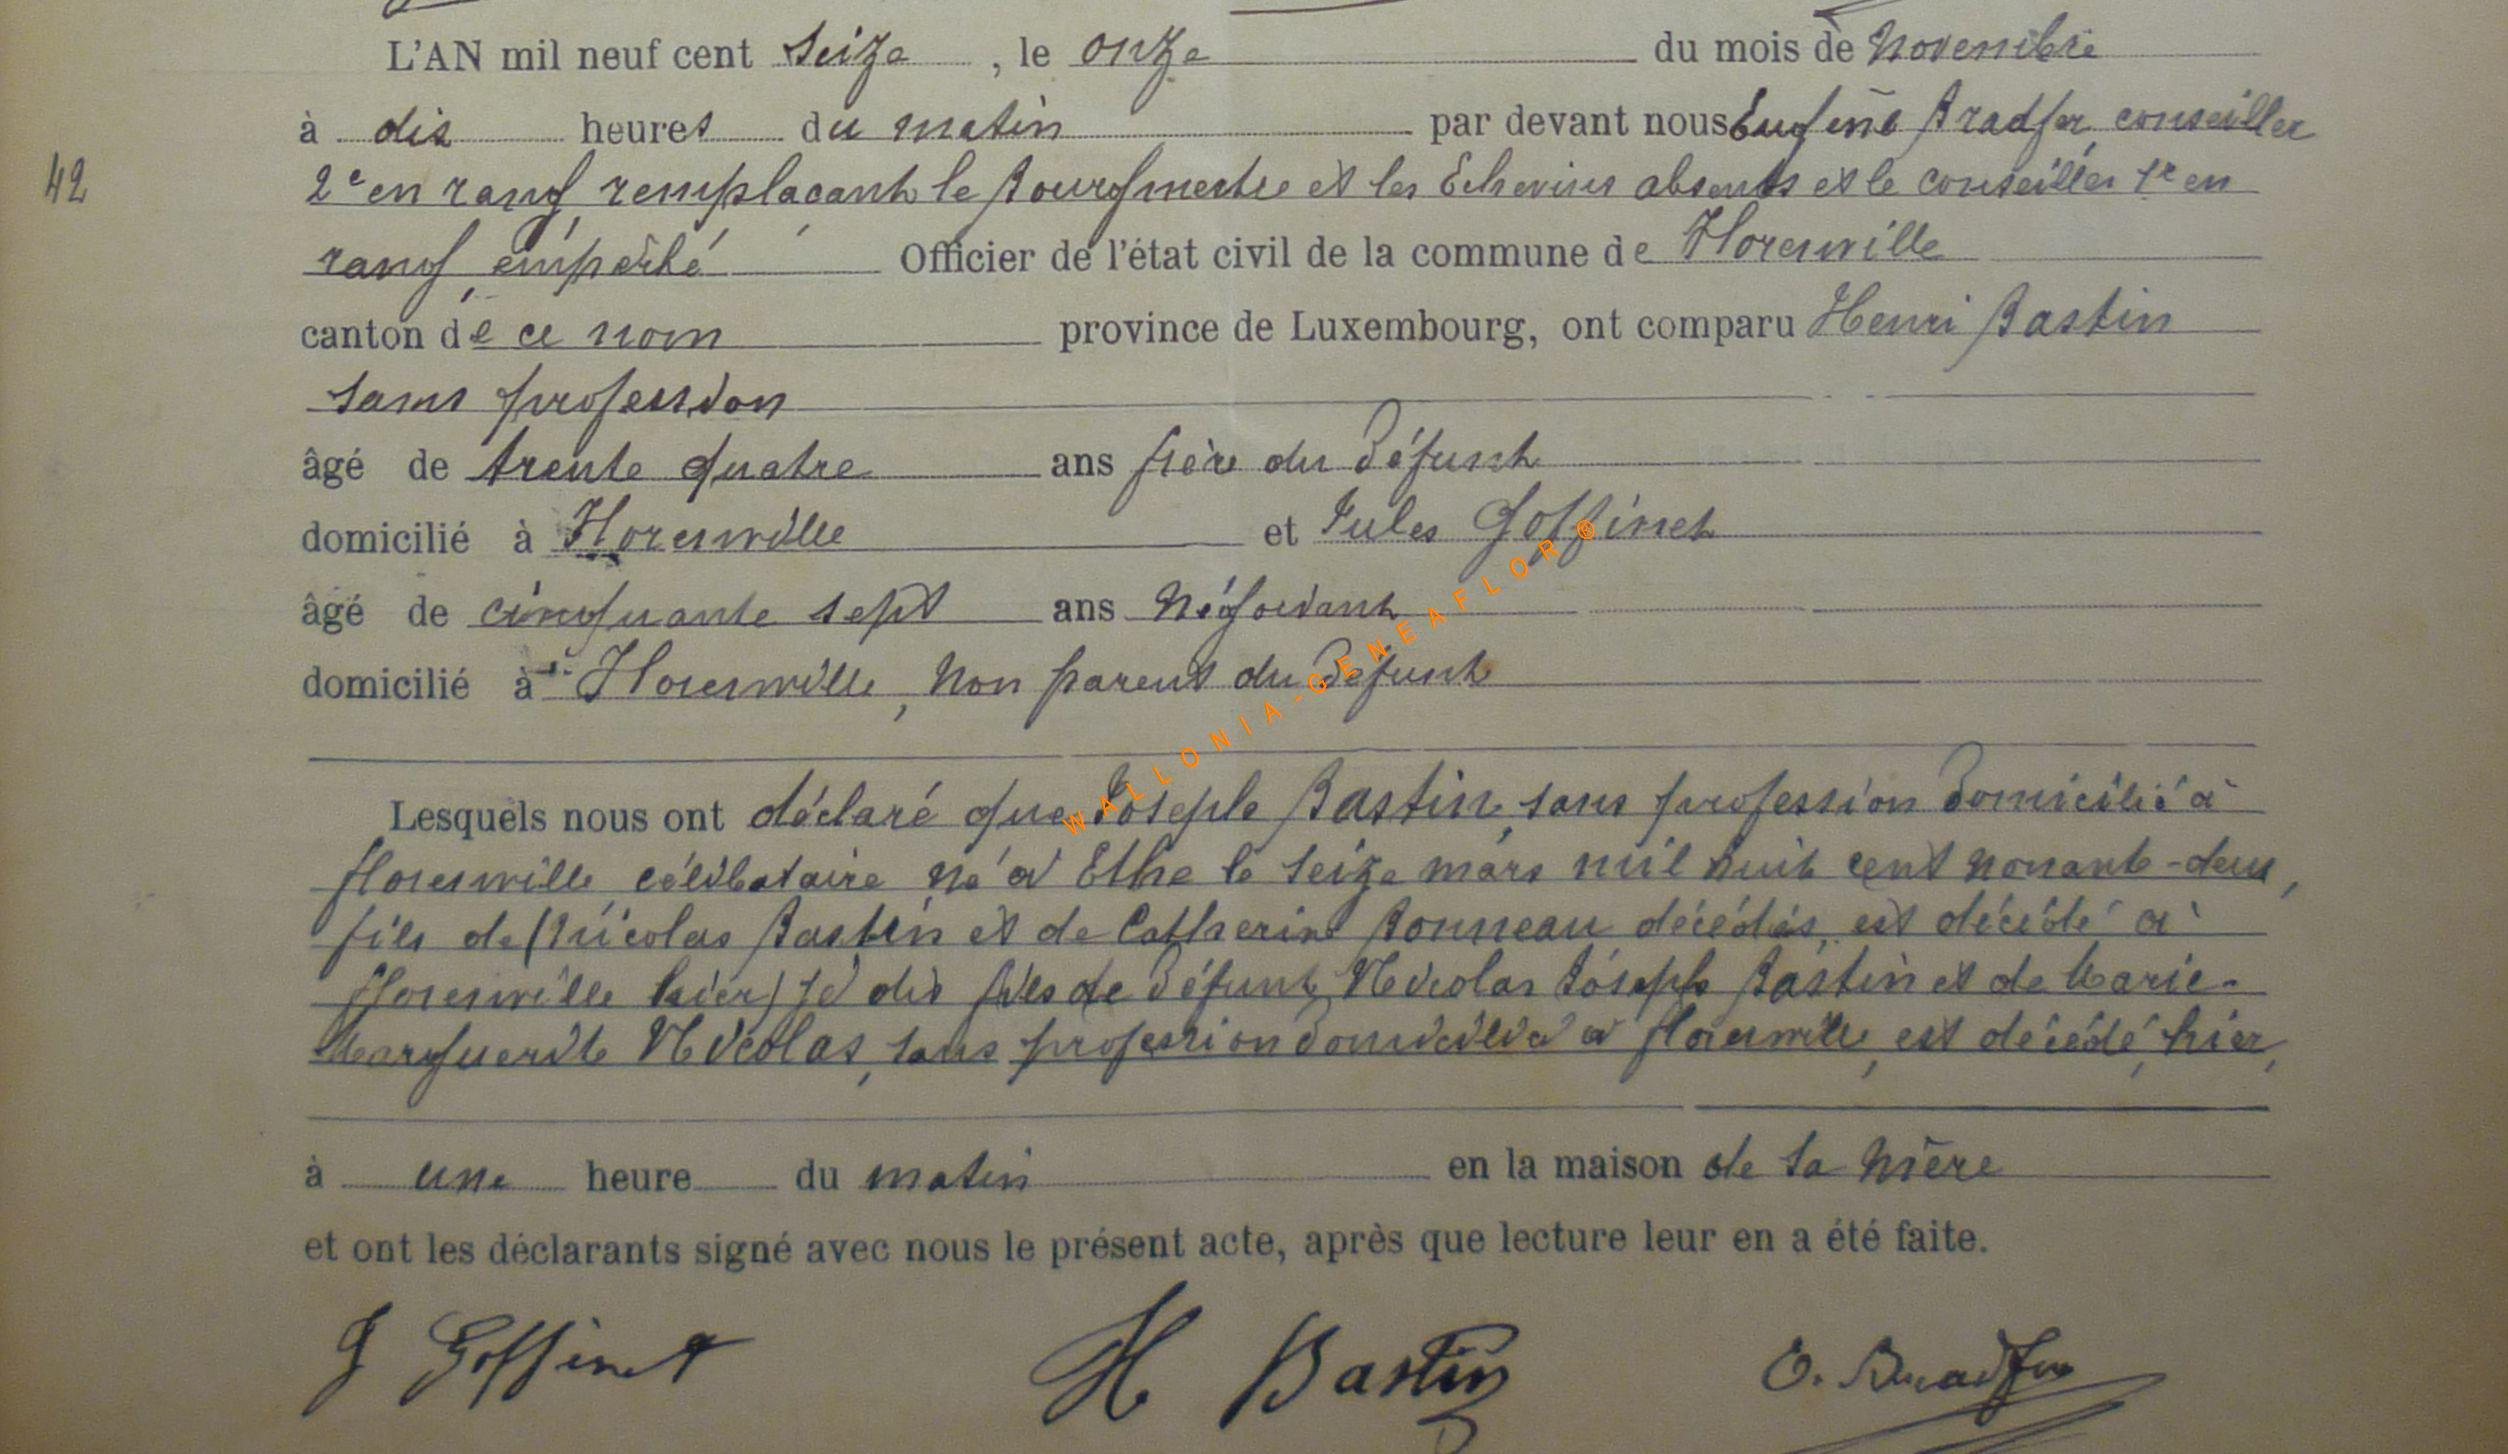 L'AN mil neuf cent seize, le onze du mois de Novembre
à dix heures du matin par devant nous Eugène Bradfer, conseiller
42
2e en rang, remplaçant le Bourgmestre et les Echevins absents et le conseiller 1er en
rang, empêché Officier de l'état civil de la commune de Florenville
canton de ce nom province de Luxembourg, ont comparu Henri Bastin
sans profession
âgé de trente quatre ans frère du défunt
domicilié à Florenville et Jules Goffinet
âgé de cinquante sept ans Négociant
domicilié à Florenville, non parent du défunt
WALLONIA-GENEAFLOR®
Lesquels nous ont déclaré que Joseph Bastin, sans profession domicilié à
florenville, célibataire, né à Ethe le seize mars mil huit cent nonante-deux,
fils de (Nicolas Bastin et de Catherine Bonneau, décédés, est décédé à
florenville hier) je dis fils de défunt Nicolas Joseph Bastin et de Marie-
Marguerite Nicolas, sans profession domiciliée à florenville, est décédé, hier,
à une heure du matin en la maison de sa mère
et ont les déclarants signé avec nous le présent acte, après que lecture leur en a été faite.
J Goffinet H Bastin E. Bradfer